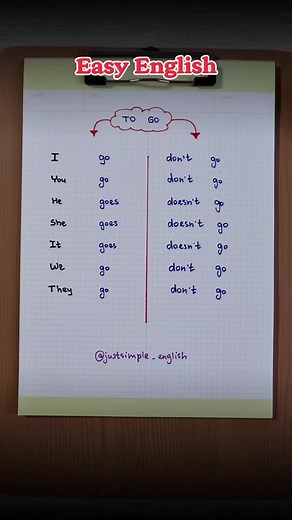 Easy English
TO GO
I go don't go
You go don't go
He goes doesn't go
She goes doesn't go
It goes doesn't go
We go don't go
They go don't go
@justsimple_english